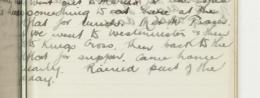 something to eat here at the
that for lunch. Met Mr Frazer
we went to Westminster & then
to Kings Cross, then back to the
that for supper, came home
early. Rained part of the
day.